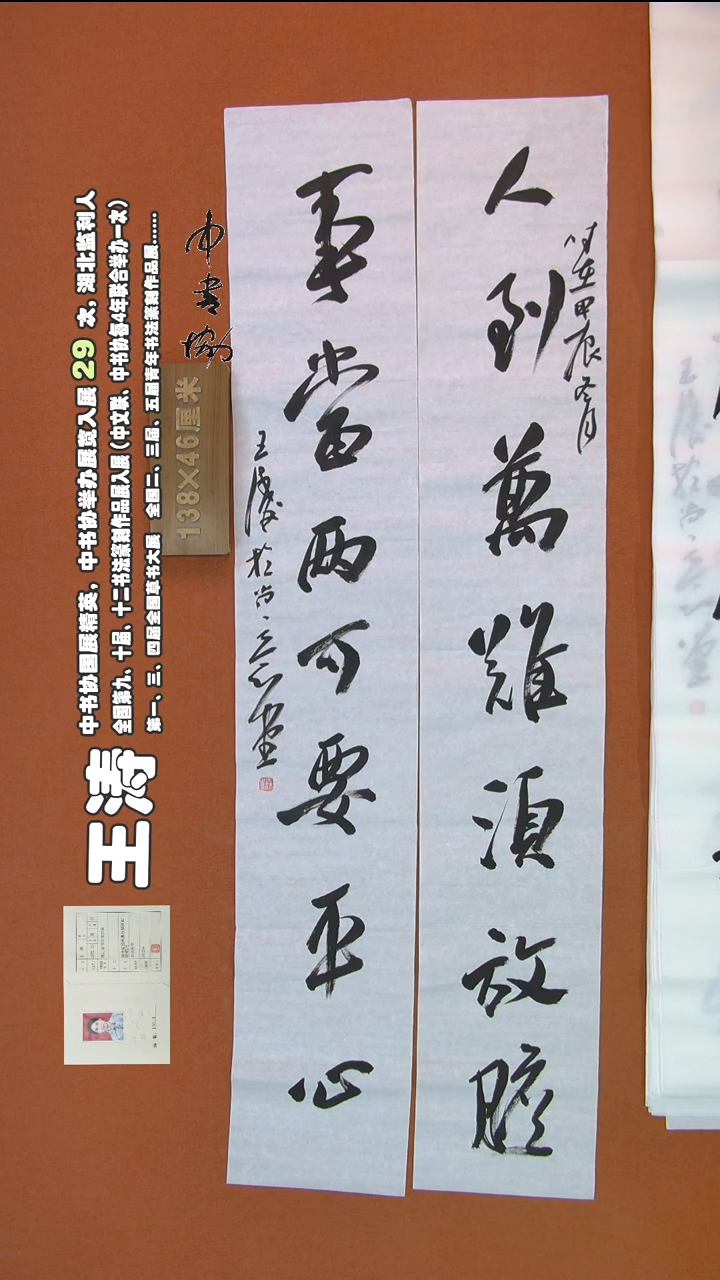 人到萬難須放膽
时在甲辰冬月
事當两可要平心
王濤於尚意堂
中書協
138×46厘米
王涛
中书协国展精英，中书协举办展览入展 29 次，湖北监利人
全国第九、十届、十二书法篆刻作品展入展（中文联、中书协每4年联合举办一次）
第一、三、四届全国草书大展 全国二、三届、五届青年书法篆刻作品展......